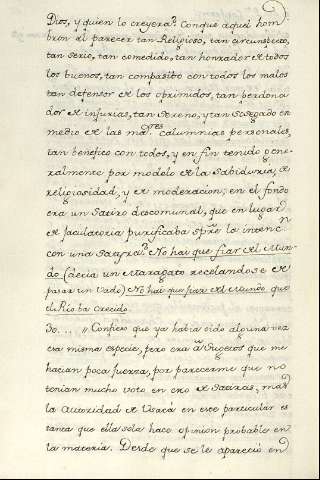 Dios, y quien lo creyera? Conque aquel hom
bron al parecer tan Religioso, tan circunspecto,
tan serio, tan comedido, tan honrador de todos
los buenos, tan compasibo con todos los malos
tan defensor de los oprimidos, tan perdona
dor de injurias, tan sereno, y tan sosegado en
medio de las mayres calumnias personales,
tan benefico con todos, y en fin tenido gene
ralmente por modelo de la Sabiduria, de
religiosidad, y de moderacion; en el fondo
era un Satiro descomunal, que en lugar
de jaculatoria purificaba spre la intencn
con una No hai que fiar del Mun
do (decia un Maragato recelandose de
pasar un Vado) No hai que fiar del Mundo, que
el Rio ba crecido.
30.... "Confieso que ya habia oido alguna vez
esa misma especie, pero era á Sugetos que me
hacian poca fuerza, por parecerme que no
tenian mucho voto en eso de Satiras, mas
la Autoridad de en ese particular es
tanta que ella sola hace opinion probable en
la materia. Desde que se le aparecio en